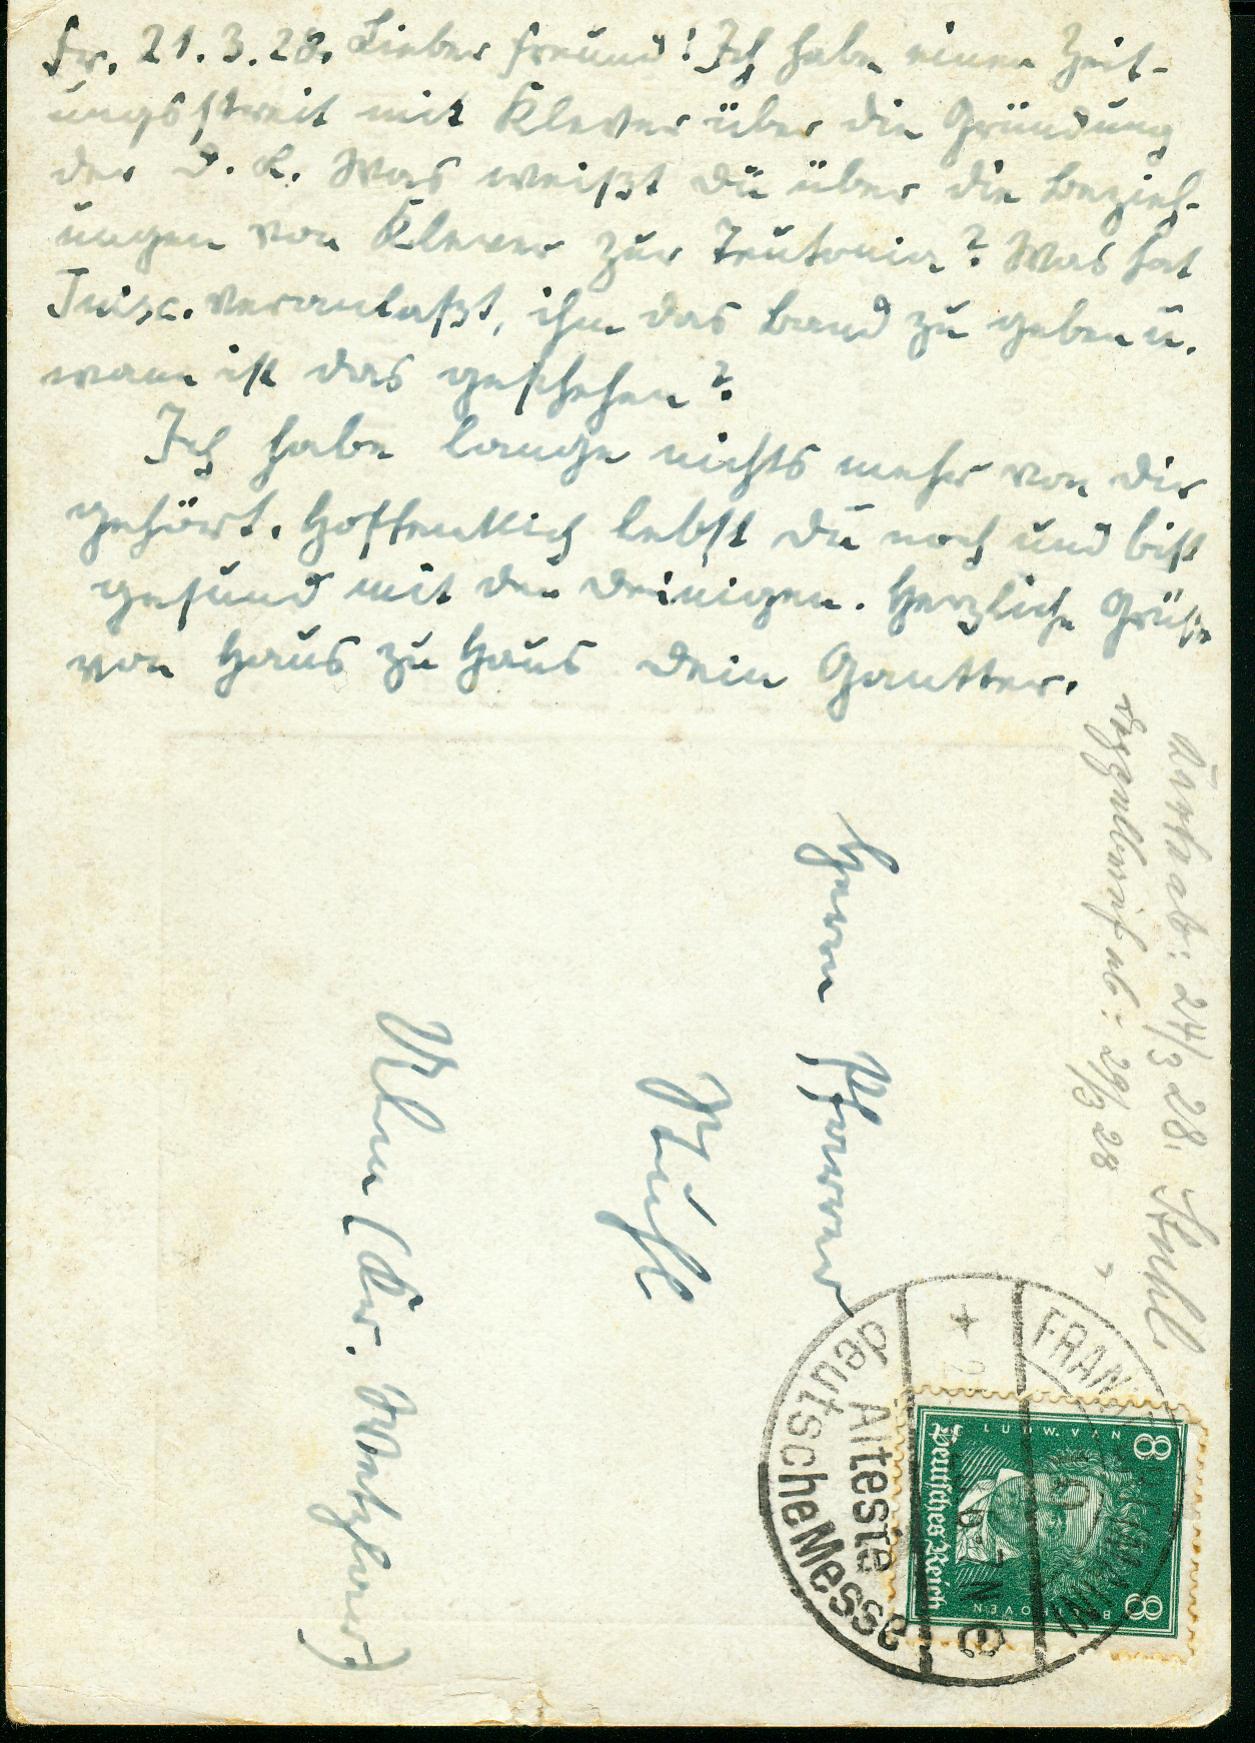 Fr. 21.3.28. Lieber Freund! Ich habe einen Zeit-
ungsstreit mit Klever über die Gründung
der D. L. Was weißt du über die Bezieh-
ungen von Klever zur Teutonia? Was hat
veranlaßt, ihm das Band zu geben u.
wann ist das geschehen?
Ich habe lange nichts mehr von dir
gehört. Hoffentlich lebst du noch und bist
gesund mit den Deinigen. Herzliche Grüße
von Haus zu Haus dein Gantter.
24/3 28.
ab: 29/3 28
Herrn Pfarrer
Ulm (Kr. Wetzlar)
FRANKFURT (MAIN)
6-7 N
e
Älteste
deutsche Messe
8 8
L. v. BEETHOVEN
Deutsches Reich